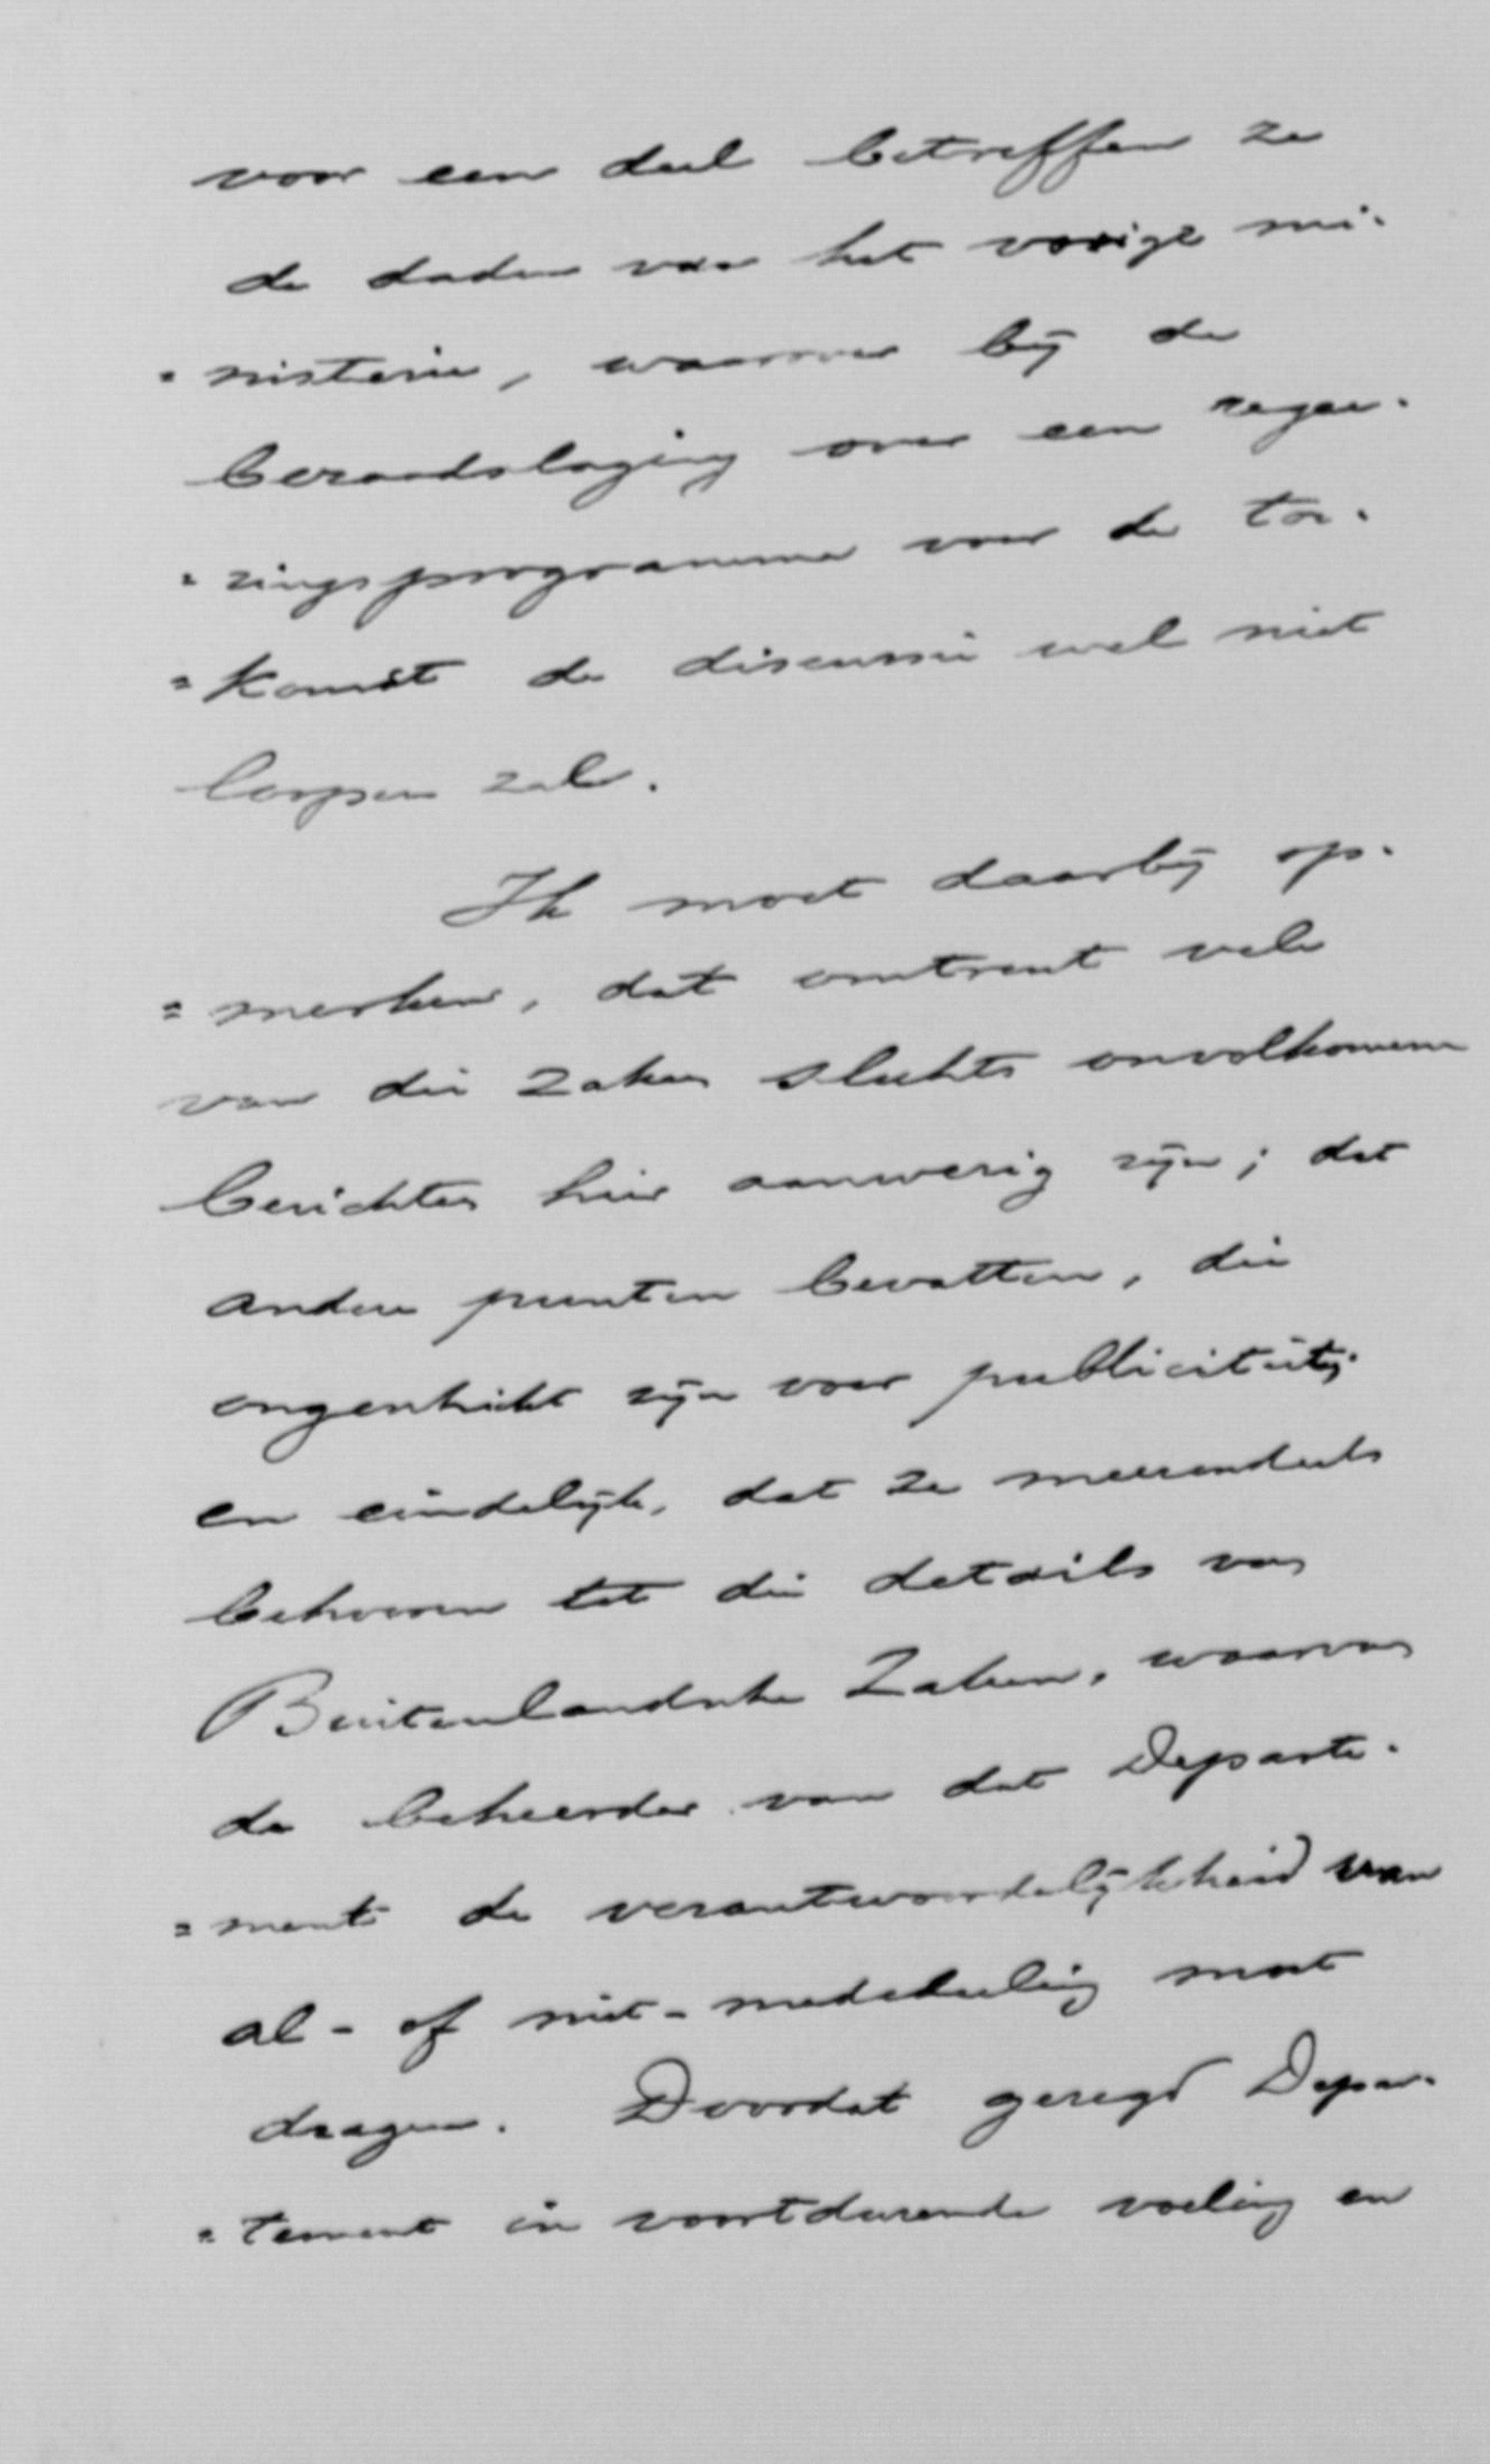 voor een deel betreffen ze
de daden van het vorige mi-
=nisterie, waarover bij de
beraadslaging over een regee-
=ringsprogramma voor de toe-
=komst de discussie wel niet
loopen zal.
Ik moet daarbij op-
=merken, dat omtrent vele
van die zaken slechts onvolkomene
berichten hier aanwezig zijn; dat
andere punten bevatten, die
ongeschikt zijn voor publiciteit;
en eindelijk, dat ze meerendeels
behooren tot die details van
Buitenlandsche Zaken, waarvan
de beheerder van dat Departe-
=ment de verantwoordelijkheid van
al- of niet-mededeeling moet
dragen. Doordat gezegd Depar-
=tement in voortdurende voeling en